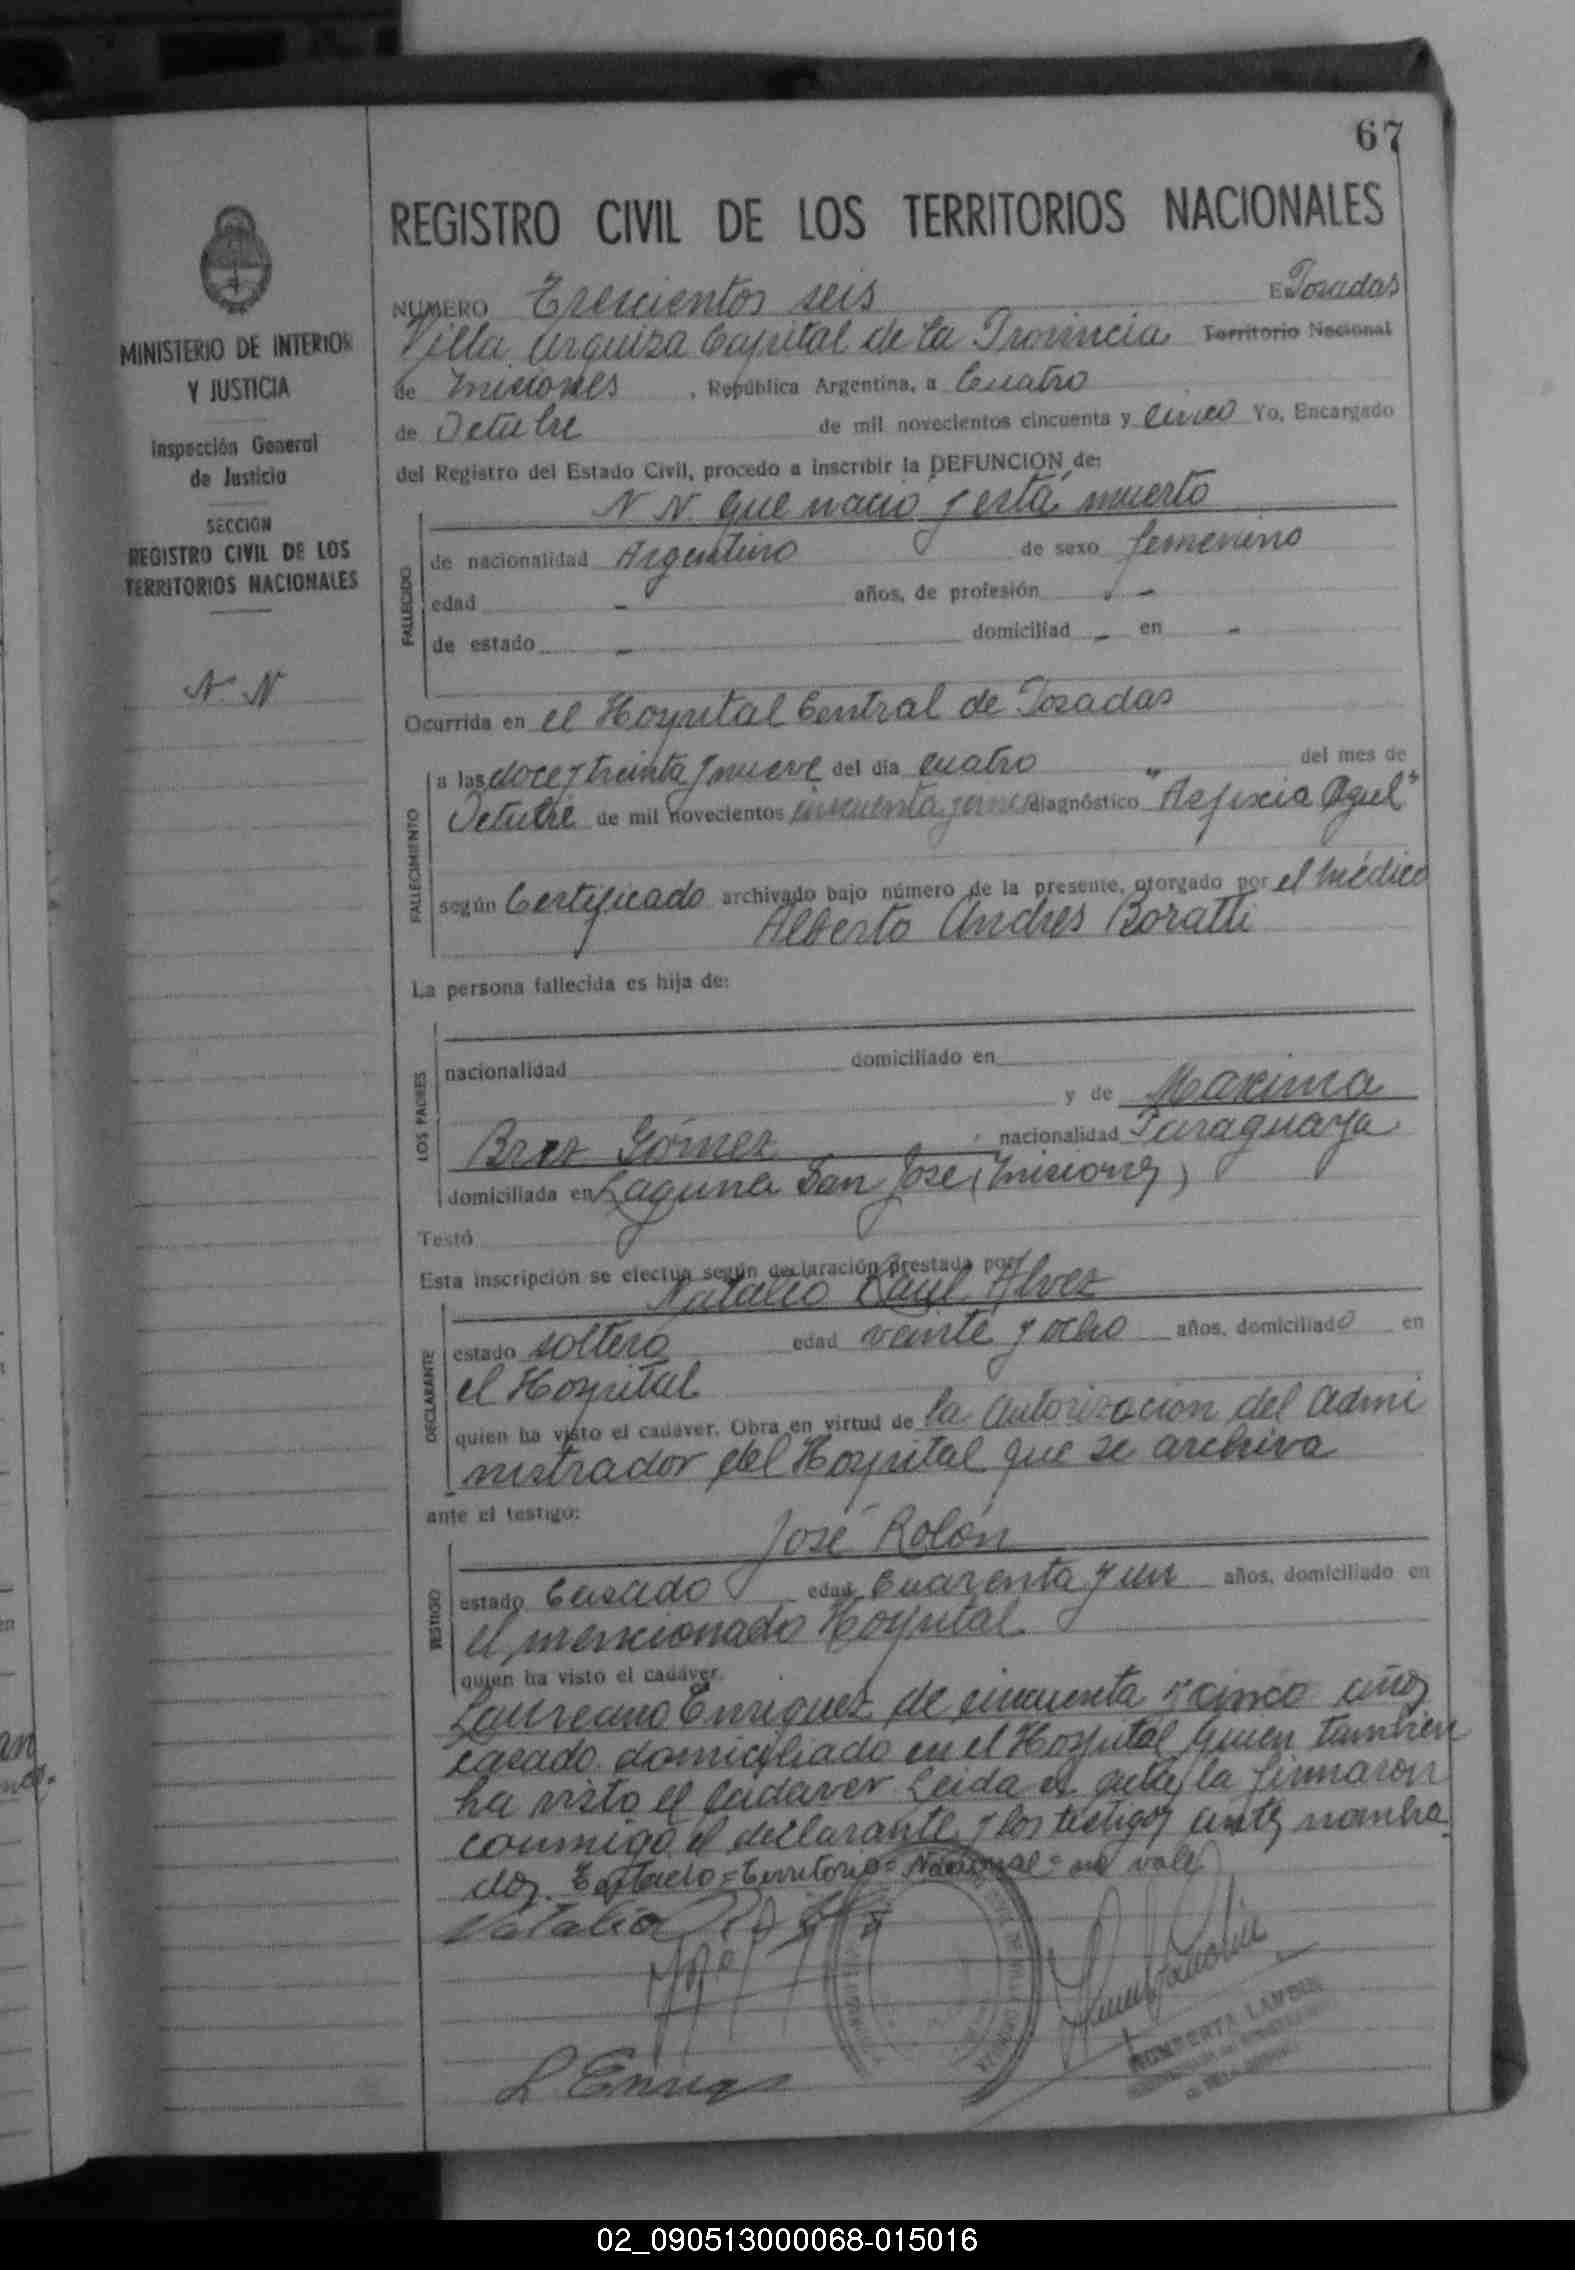 67
REGISTRO CIVIL DE LOS TERRITORIOS NACIONALES
NUMERO Trescientos seis En Posadas
Villa Urquiza Capital de la Provincia Territorio Nacional
de Misiones, República Argentina, a Cuatro
de Octubre de mil novecientos cincuenta y cinco Yo, Encargado
del Registro del Estado Civil, procedo a inscribir la DEFUNCION de:
N N que nacio y está muerto
FALLECIDO
de nacionalidad Argentino de sexo femenino
edad - años, de profesión -
de estado - domiciliad - en -
Ocurrida en el Hospital Central de Posadas
FALLECIMIENTO
a las doce y treinta y nueve del día cuatro del mes de
Octubre de mil novecientos cincuenta y cinco diagnóstico "Asfixia
según Certificado archivado bajo número de la presente, otorgado por el médico
Alberto Andres Boratti
La persona fallecida es hija de:
LOS PADRES
nacionalidad domiciliado en
y de Maxima
Brez Gómez, nacionalidad Paraguaya
domiciliada en Laguna San José (Misiones)
Testó
Esta inscripción se efectua según declaración prestada por
Natalio Raul Alvez
DECLARANTE
estado soltero edad veinte y ocho años, domiciliado en
el Hospital
quien ha visto el cadáver. Obra en virtud de la autorizacion del admi
nistrador del Hospital que se archiva
ante el testigo:
José Rolón
TESTIGO
estado Casado edad Cuarenta y un años, domiciliado en
el mencionado Hospital
quien ha visto el cadáver.
Laureano Enriquez de cincuenta y cinco años
casado domiciliado en el Hospital quien tambien
ha visto el cadaver Leida el acta la firmaron
conmigo el declarante y los testigos antes nombra
dos. Testado = Territorio = Nacional = no vale
Natalio
L Enriq
MINISTERIO DE INTERIOR
Y JUSTICIA
Inspección General
de Justicia
SECCION
REGISTRO CIVIL DE LOS
TERRITORIOS NACIONALES
N. N
02_090513000068-015016